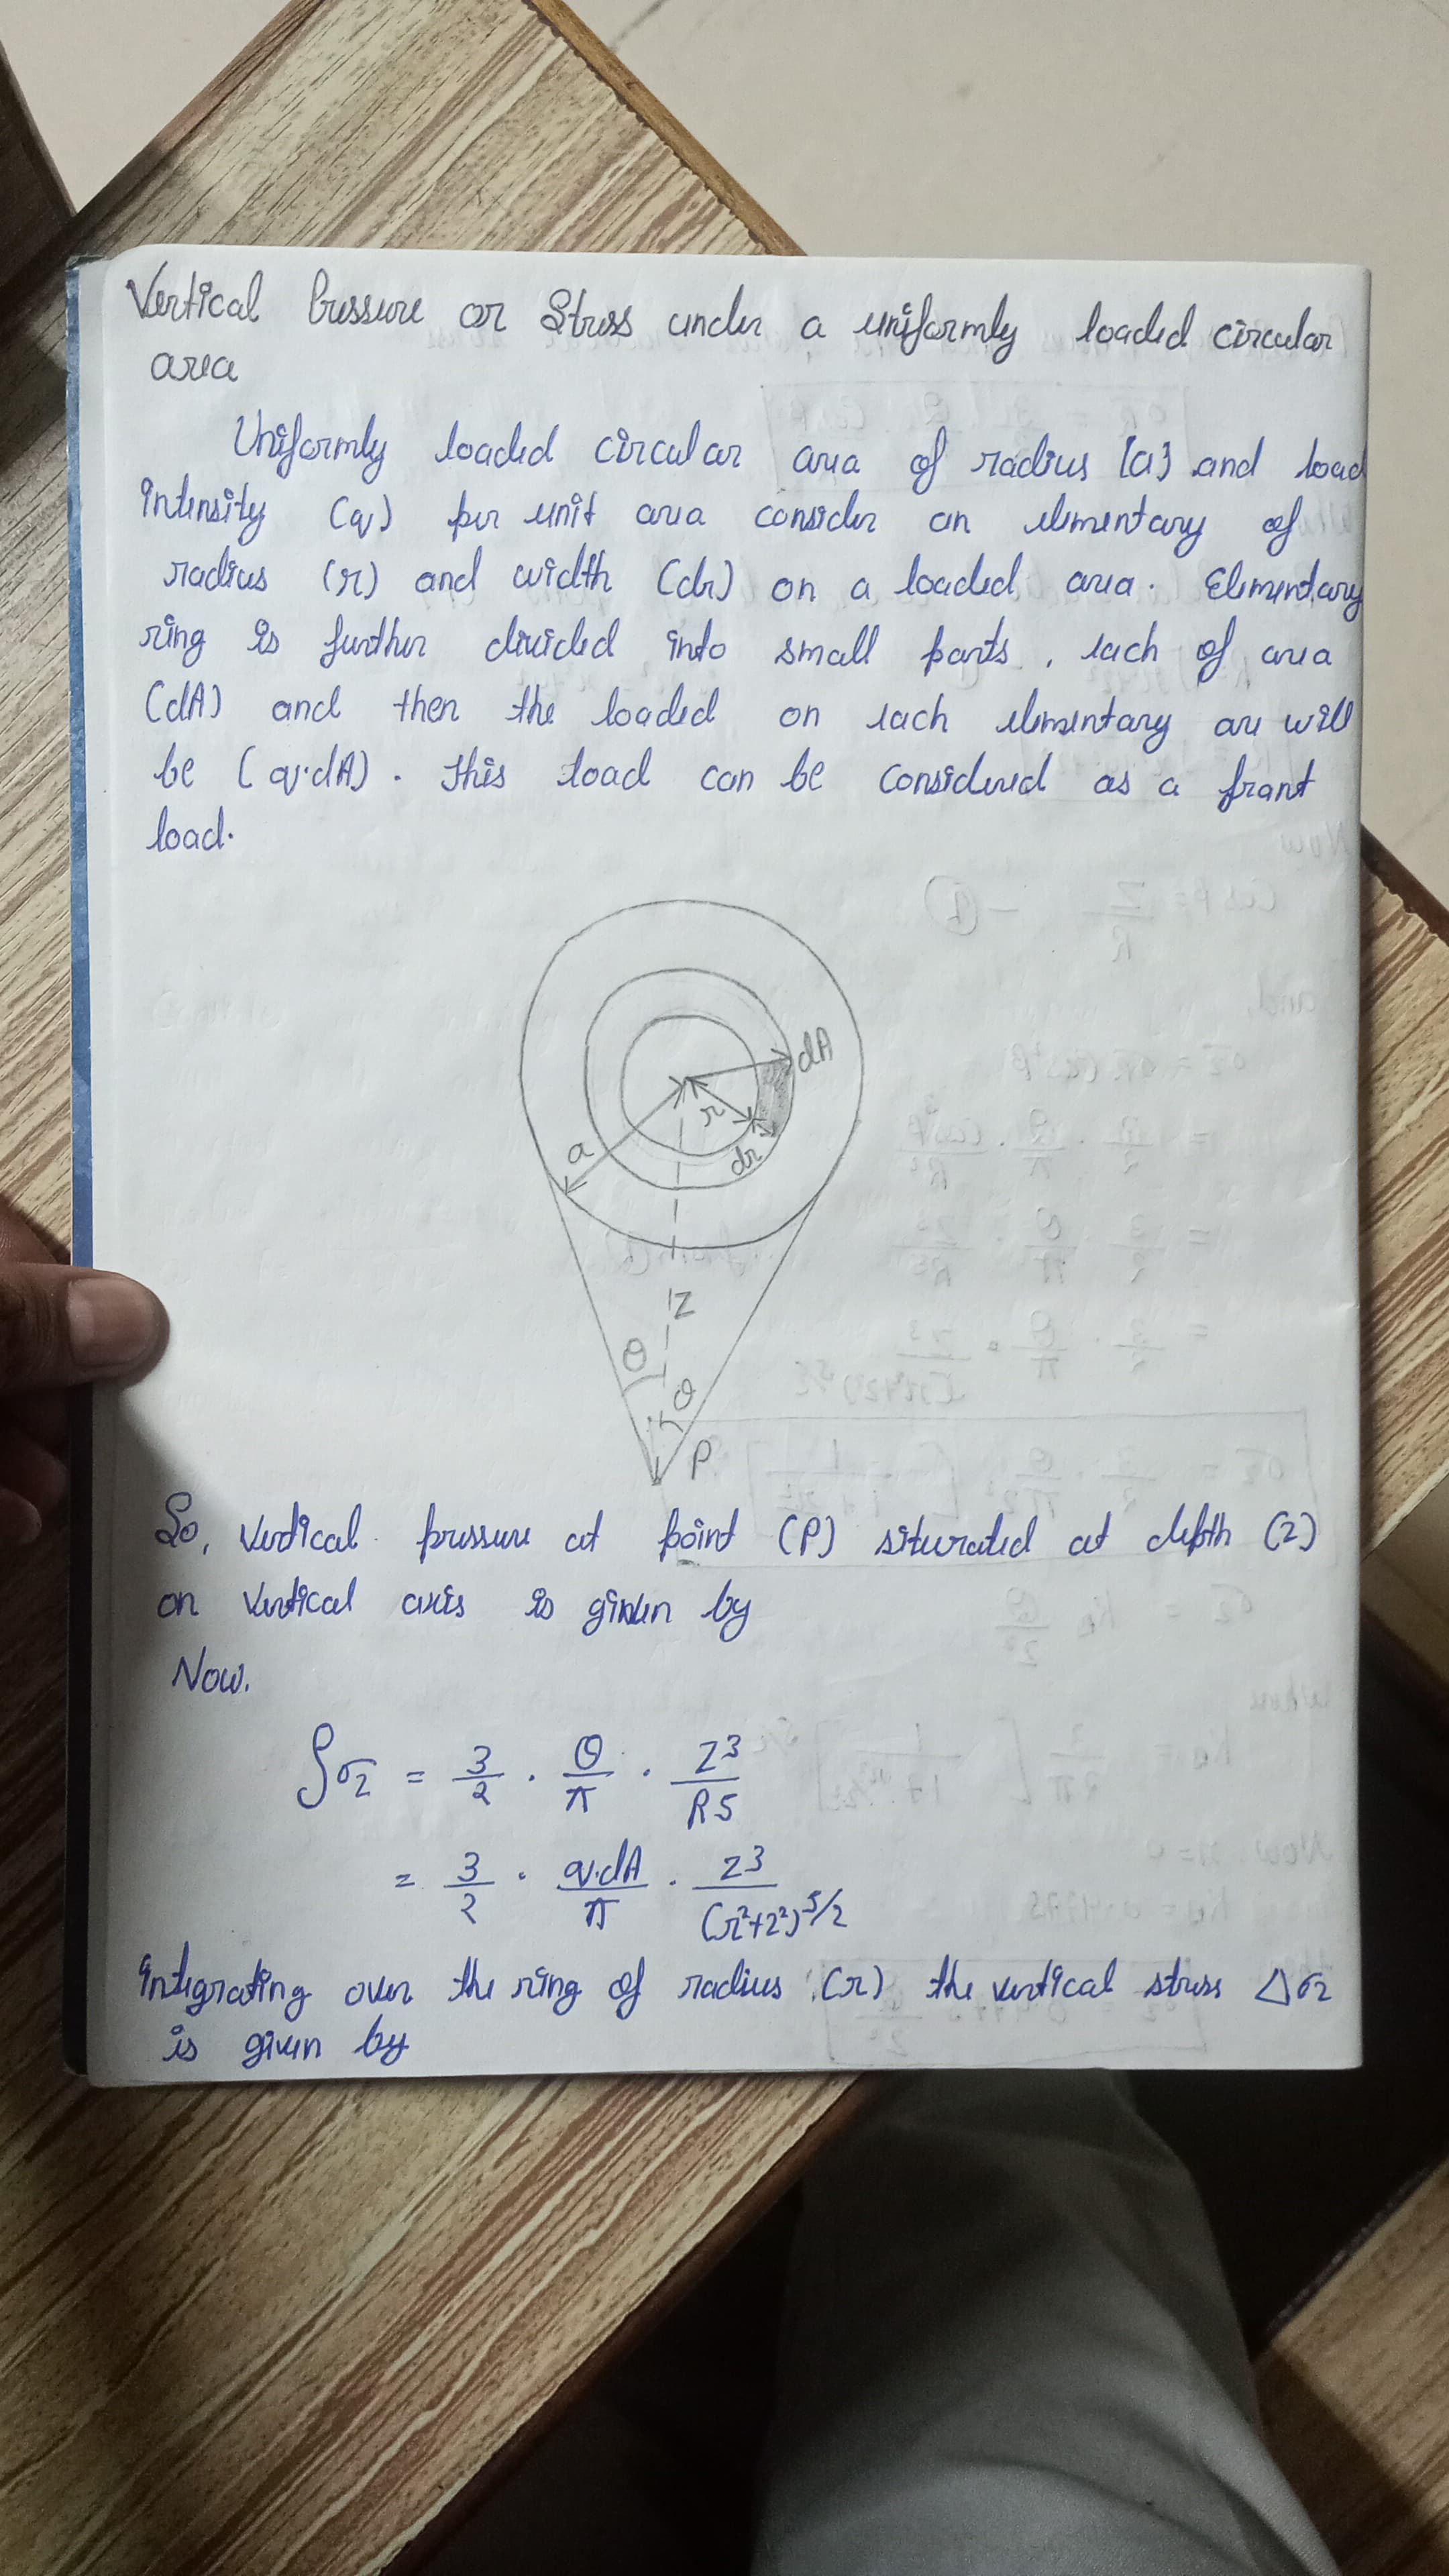 Vertical Pressure or Stress under a uniformly loaded circular
area
Uniformly loaded circular area of radius [a] and load
intensity (q) per unit area consider an elementary of
radius (r) and width (dr) on a loaded area. Elementary
ring is further divided into small parts, each of area
(dA) and then the loaded on each elementary are will
be (q.dA). This load can be considered as a
load.
dA
r
a
dr
Z
θ
θ
P
So, vertical pressure at point (P) siturated at depth (Z)
on vertical axis is given by
Now.
∫σz = 3/2 · Q/π · Z3/R5
= 3/2 · q.dA/π · Z3/(r²+z²)5/2
integrating over the ring of radius (r) the vertical stress Δσz
is given by